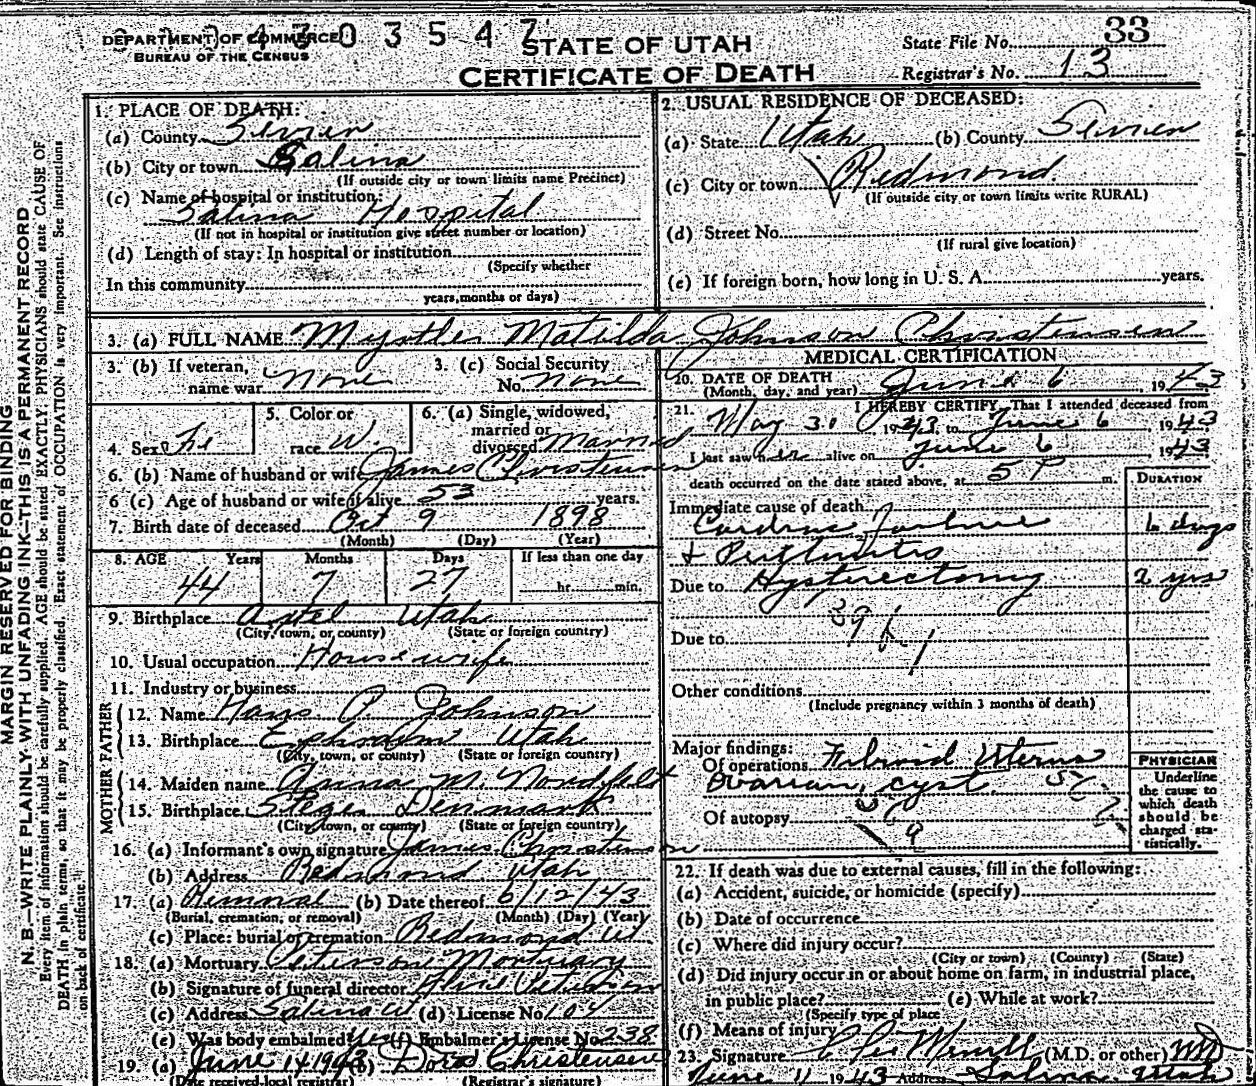 DEPARTMENT OF COMMERCE
BUREAU OF THE CENSUS
0 4 3 0 3 5 4 7
STATE OF UTAH
CERTIFICATE OF DEATH
State File No. 33
Registrar's No. 13
MARGIN RESERVED FOR BINDING
N. B.—WRITE PLAINLY WITH UNFADING INK—THIS IS A PERMANENT RECORD
Every item of information should be carefully supplied. AGE should be stated EXACTLY. PHYSICIANS should state CAUSE OF
DEATH in plain terms, so that it may be properly classified. Exact statement of OCCUPATION is very important. See instructions
on back of certificate.
1. PLACE OF DEATH:
(a) County Sevier
(b) City or town Salina
(If outside city or town limits name Precinct)
(c) Name of hospital or institution:
Salina Hospital
(If not in hospital or institution give street number or location)
(d) Length of stay: In hospital or institution
(Specify whether
In this community
years, months or days)
2. USUAL RESIDENCE OF DECEASED:
(a) State Utah (b) County Sevier
(c) City or town Redmond
(If outside city or town limits write RURAL)
(d) Street No.
(If rural give location)
(e) If foreign born, how long in U. S. A. years.
3. (a) FULL NAME Myrtle Matilda Johnson Christensen
3. (b) If veteran, name war none
3. (c) Social Security No. none
4. Sex Fe
5. Color or race W.
6. (a) Single, widowed, married or divorced Married
6. (b) Name of husband or wife James Christensen
6 (c) Age of husband or wife if alive 53 years.
7. Birth date of deceased Oct 9 1898
(Month) (Day) (Year)
8. AGE Years Months Days If less than one day
44 7 27 hr. min.
9. Birthplace Utah
(City, town, or county) (State or foreign country)
10. Usual occupation Housewife
11. Industry or business
FATHER
12. Name Hans P. Johnson
13. Birthplace Ephraim Utah
(City, town, or county) (State or foreign country)
MOTHER
14. Maiden name Anna M. Nordfelt
15. Birthplace Stege Denmark
(City, town, or county) (State or foreign country)
16. (a) Informant's own signature James Christensen
(b) Address Redmond Utah
17. (a) Removal (b) Date thereof 6/12/43
(Burial, cremation, or removal) (Month) (Day) (Year)
(c) Place: burial or cremation Redmond Ut
18. (a) Mortuary Peterson Mortuary
(b) Signature of funeral director
(c) Address Salina U (d) License No. 104
(e) Was body embalmed? yes (f) Embalmer's License No. 238
19. (a) June 14 1943 (b) Christensen
(Date received local registrar) (Registrar's signature)
MEDICAL CERTIFICATION
20. DATE OF DEATH June 6, 1943
(Month, day, and year)
21. I HEREBY CERTIFY, That I attended deceased from
May 30 1943, to June 6 1943
I last saw her alive on June 6 1943
death occurred on the date stated above, at 5 P m.
DURATION
Immediate cause of death
Cardiac Failure 6 days
+ Peritonitis
Due to Hysterectomy 2 yrs
Due to
Other conditions
(Include pregnancy within 3 months of death)
Major findings:
Of operations Fibroid Uterus
Ovarian cyst
Of autopsy
PHYSICIAN
Underline
the cause to
which death
should be
charged sta-
tistically.
22. If death was due to external causes, fill in the following:
(a) Accident, suicide, or homicide (specify)
(b) Date of occurrence
(c) Where did injury occur?
(City or town) (County) (State)
(d) Did injury occur in or about home on farm, in industrial place,
in public place? (e) While at work?
(Specify type of place
(f) Means of injury
23. Signature (M.D. or other) MD
June 11 1943 Address Salina Utah